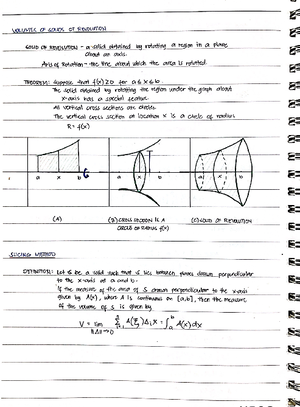 VOLUMES OF SOLIDS OF REVOLUTION
SOLID OF REVOLUTION - a solid obtained by rotating a region in a plane
about an axis.
Axis of Revolution - the line about which the area is rotated.
THEOREM: Suppose that f(x) ≥ 0 for a ≤ x ≤ b
The solid obtained by rotating the region under the graph about
x-axis has a special feature:
All vertical cross sections are circles.
The vertical cross section at location x is a circle of radius
R = f(x)
a x b
a x b
a x b
(A)
(B) CROSS SECTION IS A
CIRCLE OF RADIUS f(x)
(C) SOLID OF REVOLUTION
SLICING METHOD
DEFINITION: Let S be a solid such that S lies between planes drawn perpendicular
to the x-axis at a and b.
If the measure of the area of S drawn perpendicular to the x-axis
given by A(x), where A is continuous on [a,b], then the measure
of the volume of S is given by
V = lim ||Δ||→0 Σ A(ξi) Δi x = ∫ₐᵇ A(x) dx